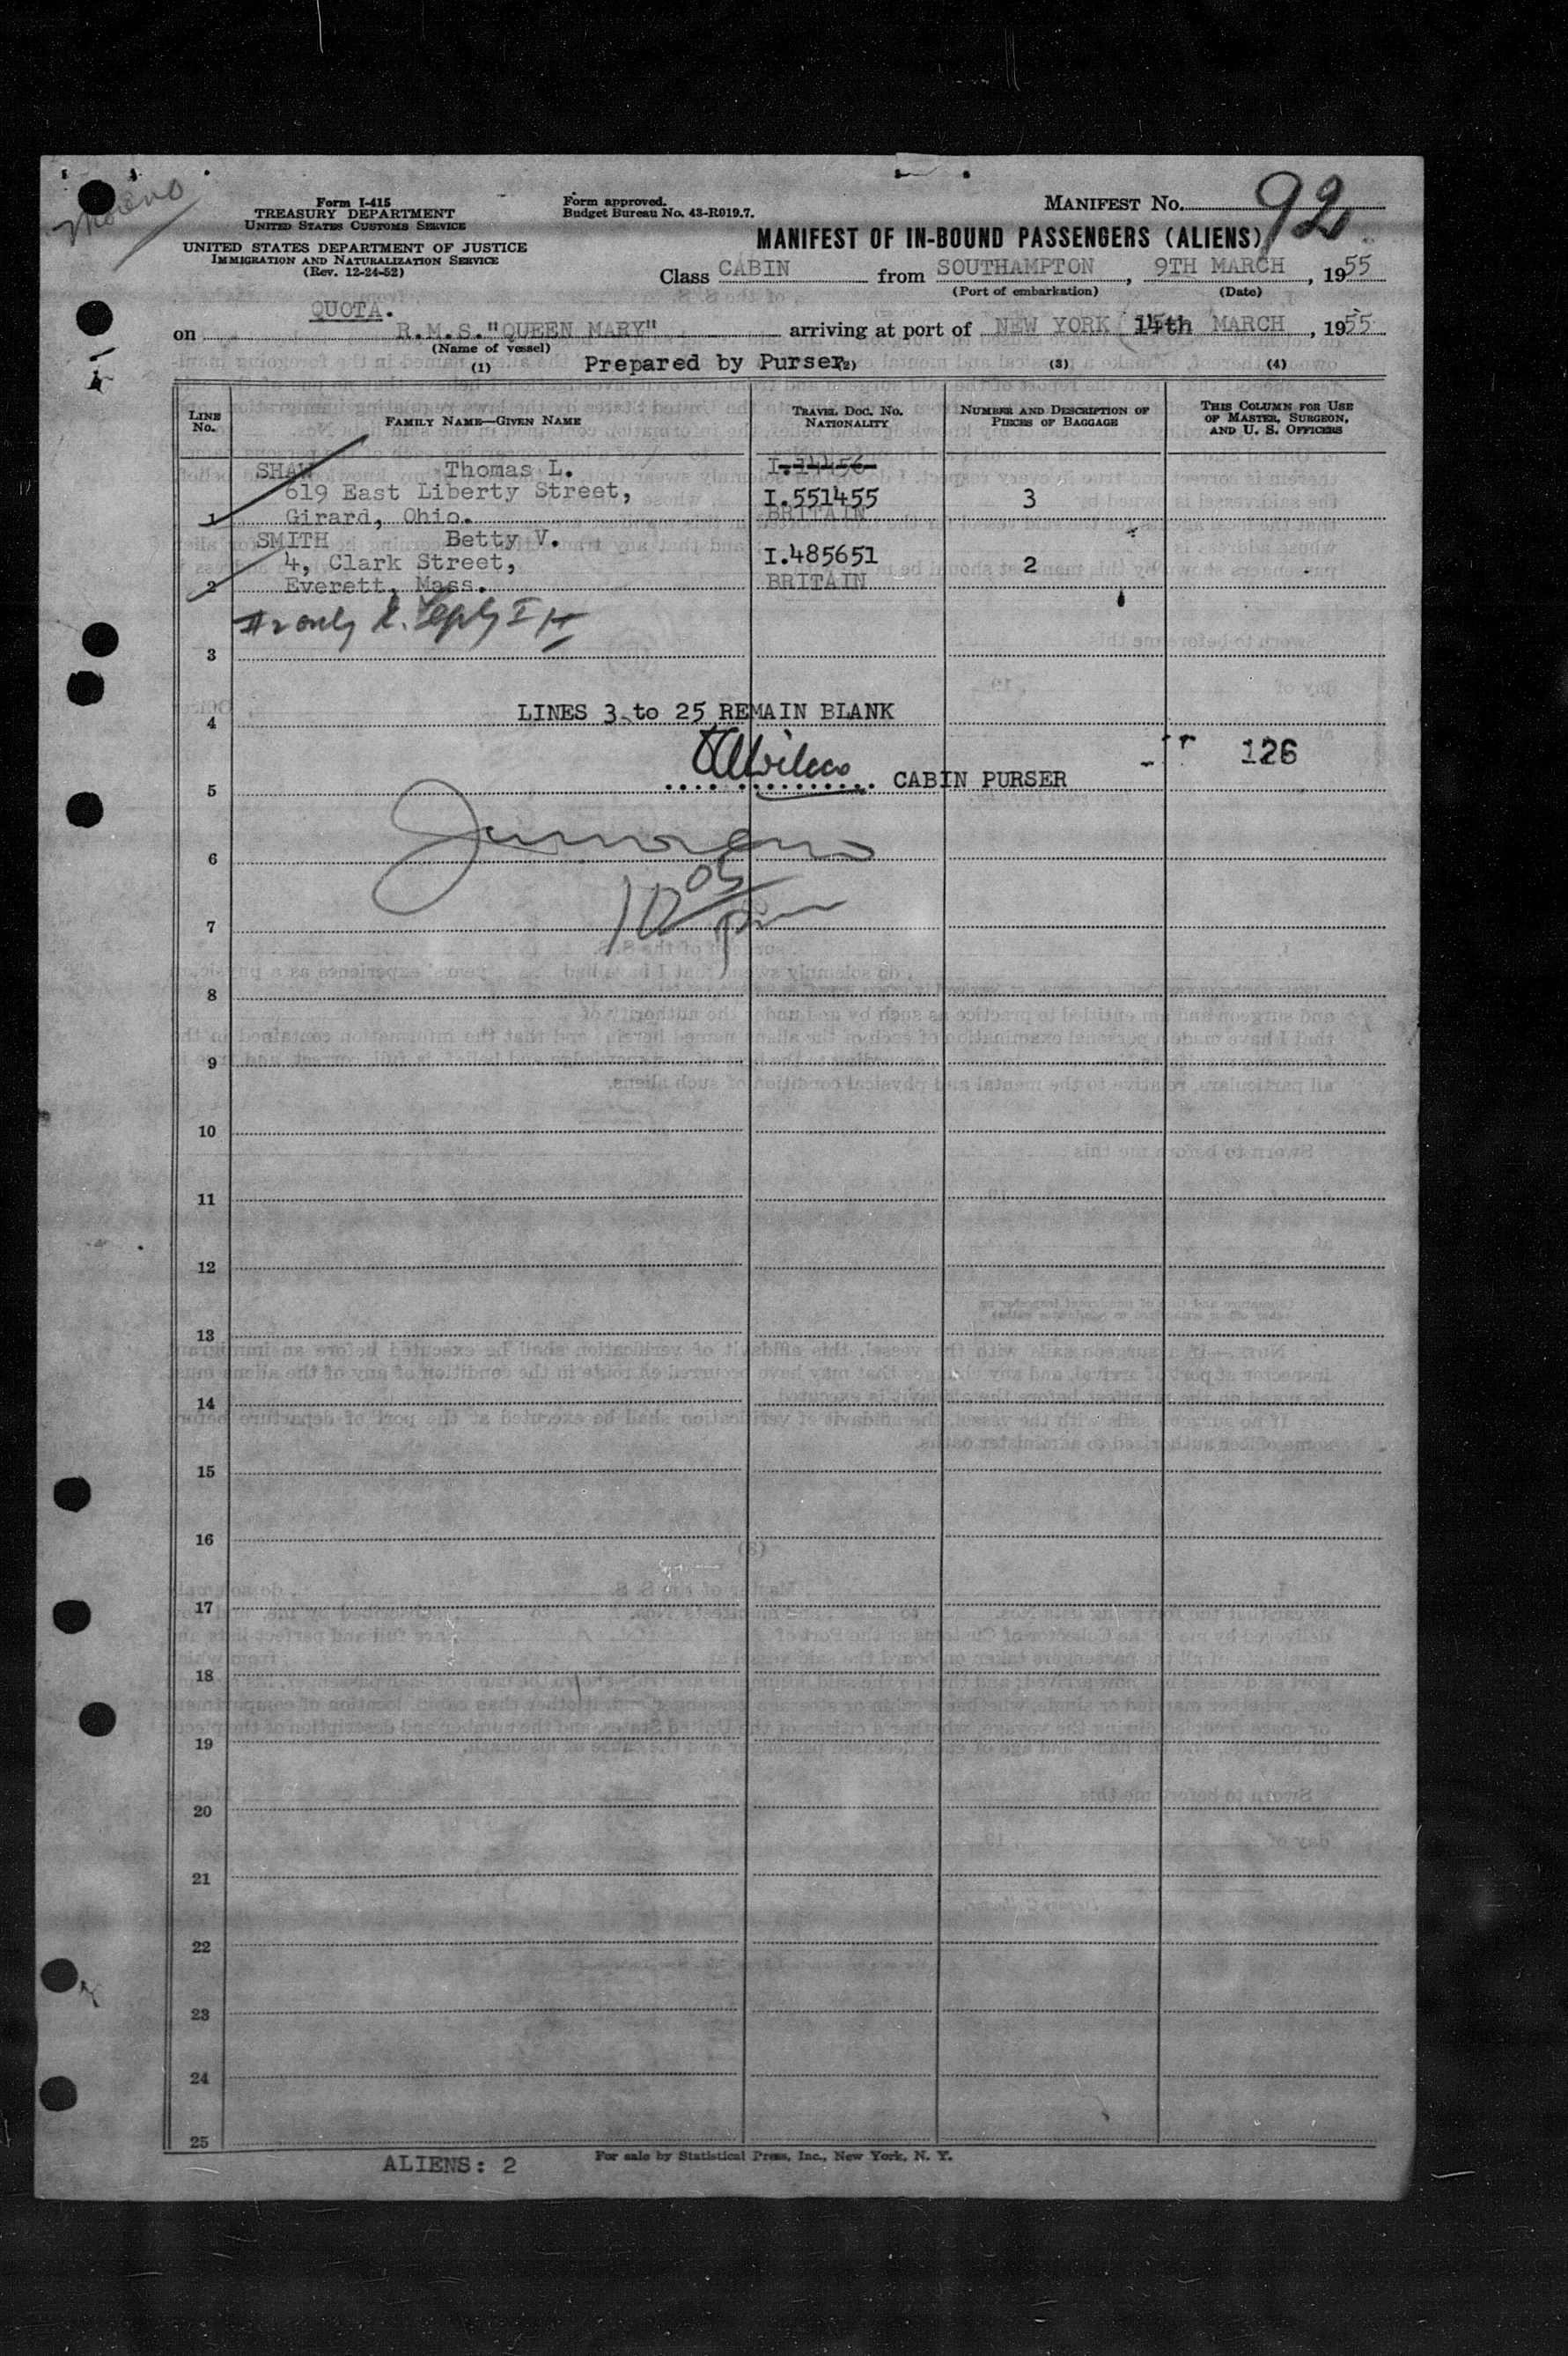 Moreno
Form I-415
TREASURY DEPARTMENT
UNITED STATES CUSTOMS SERVICE
UNITED STATES DEPARTMENT OF JUSTICE
IMMIGRATION AND NATURALIZATION SERVICE
(Rev. 12-24-52)
Form approved.
Budget Bureau No. 43-R019.7.
MANIFEST No. 92
MANIFEST OF IN-BOUND PASSENGERS (ALIENS)
Class CABIN from SOUTHAMPTON, 9TH MARCH, 1955
(Port of embarkation) (Date)
QUOTA.
on R.M.S."QUEEN MARY" arriving at port of NEW YORK 14th MARCH, 1955
(Name of vessel)
(1) Prepared by Purser (2) (3) (4)
LINE No. FAMILY NAME—GIVEN NAME TRAVEL DOC. No. NATIONALITY NUMBER AND DESCRIPTION OF PIECES OF BAGGAGE THIS COLUMN FOR USE OF MASTER, SURGEON, AND U. S. OFFICERS
SHAW Thomas L. I.14456
619 East Liberty Street, I.551455 3
1 Girard, Ohio. BRITAIN
SMITH Betty V.
4, Clark Street, I.485651 2
2 Everett, Mass. BRITAIN
#2 only
3
4 LINES 3 to 25 REMAIN BLANK
126
5 CABIN PURSER
6
10 05
7
8
9
10
11
12
13
14
15
16
17
18
19
20
21
22
23
24
25
ALIENS: 2
For sale by Statistical Press, Inc., New York, N. Y.